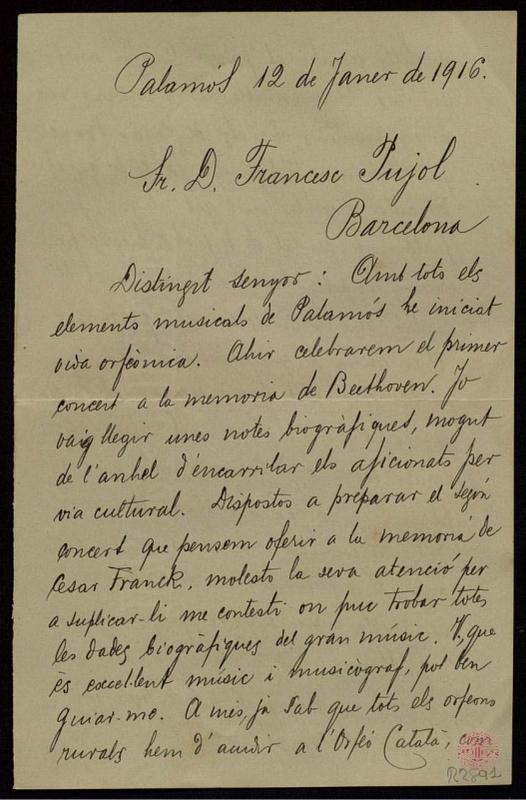 Palamós 12 de Janer de 1916.
Sr. D. Francesc Pujol
Barcelona
Distingit senyor: Amb tots els
elements musicals de Palamós he iniciat
vida orfeònica. Ahir celebrarem el primer
concert a la memoria de Beethoven. Jo
vaig llegir unes notes biogràfiques, mogut
de l'anhel d'encarrilar els aficionats per
via cultural. Dispostos a preparar el segón
concert que pensem oferir a la memoria de
Cesar Franck, molesto la seva atenció per
a suplicar-li me contesti on puc trobar totes
les dades biogràfiques del gran músic. V, que
és excellent músic i musicògraf, pot ben
guiar-me. A més, ja sab que tots els orfeons
rurals hem d'acudir a l'Orfeó Català, com
R2891